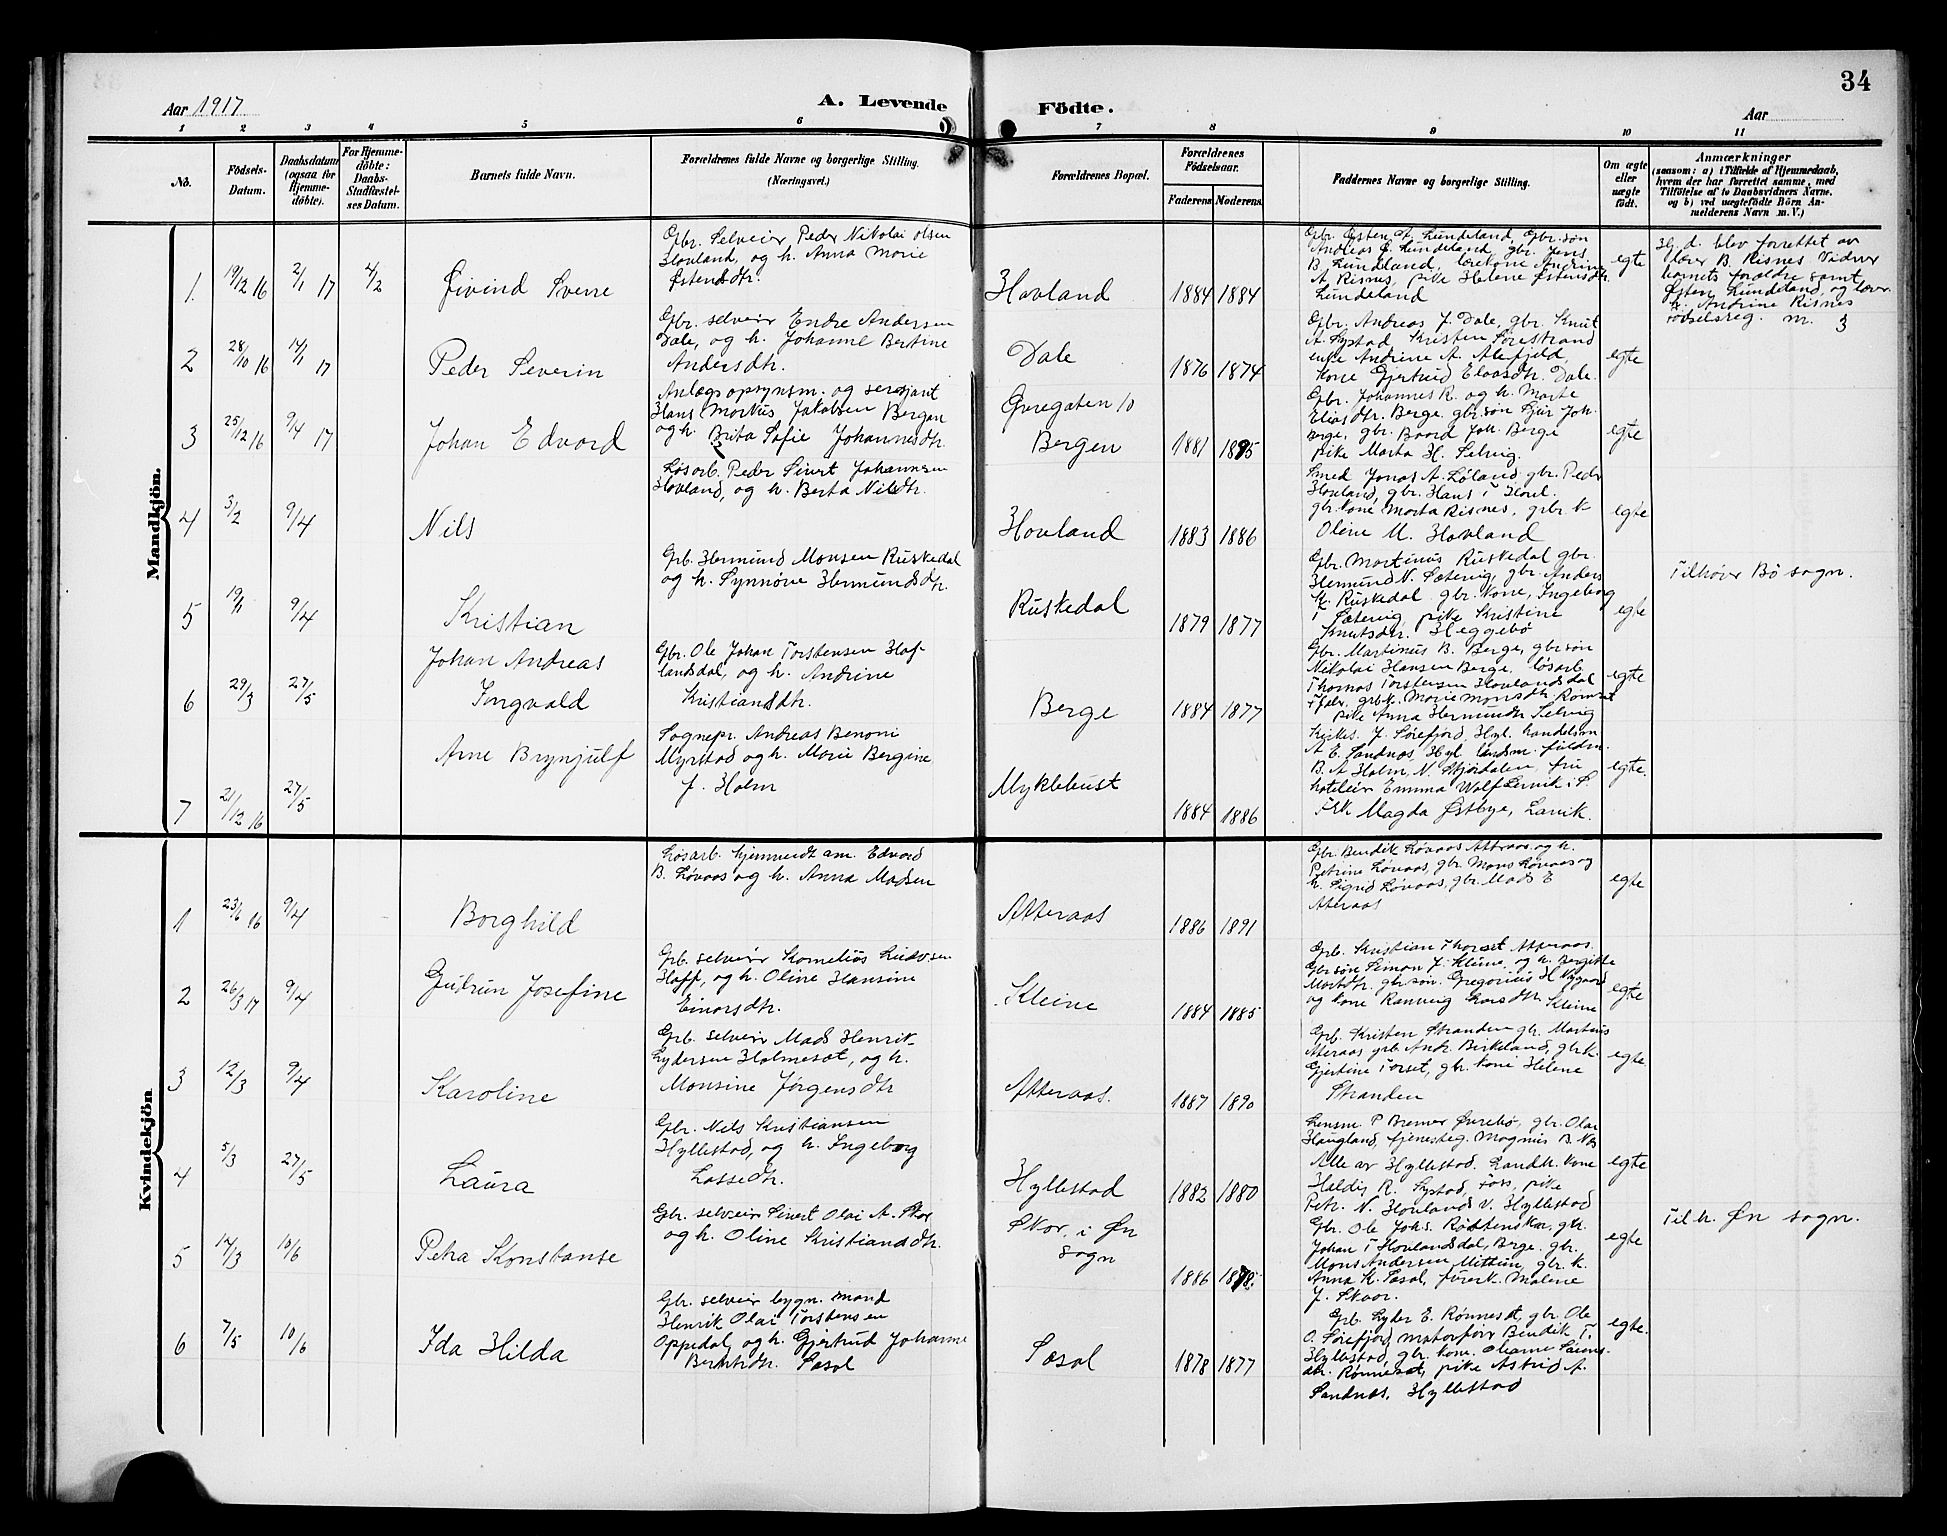 34
Aar 1917
A. Levende Födte.
Aar
1 2 3 4 5 6 7 8 9 10 11
No.
Födsels-Datum.
Daabsdatum (ogsaa for Hjemme-döbte).
For Hjemme-döbte: Daabs-Stadfæstel-ses Datum.
Barnets fulde Navn.
Forældrenes fulde Navne og borgerlige Stilling. (Næringsvei.)
Forældrenes Bopæl.
Forældrenes Födselsaar.
Faderens Moderens
Faddernes Navne og borgerlige Stilling.
Om ægte eller uægte födt.
Anmærkninger
(saasom: a) i Tilfælde af Hjemmedaab,
hvem der har forrettet samme, med
Tilföielse af to Daabsvidners Navne,
og b) ved uægtefödte Börn An-
melderens Navn m. V.)
Mandkjön.
1. 19/12 16 2/1 17 4/2 Øivind Sverre
Gbr. Selveier Peder Nikolai Olsen
Hovland, og h. Anna Marie
Østensdtr.
Hovland 1884 1884
Gbr. Østen A. Lundeland, Gbr. søn
Andreas Ø. Lundeland, gbr. Jens
B. Lundeland, lærekone Andrine
A. Risnes, pike Helene Østensdtr.
Lundeland
egte
Hj. d. blev forrettet av
lærer B. Risnes Vidner
barnets forældre samt
Østen Lundeland og lærer
k. Andrine Risnes
Fødselsreg. m. 3
2 28/10 16 14/1 17 Peder Severin
Gbr. selveier Endre Andersen
Dale, og h. Johanne Bertine
Andersdtr.
Dale 1876 1874
Gbr. Andreas J. Dale, gbr. Knut
A. Systad Kristen Sørestrand
enke Andrine A. Alefjeld,
kone Gjertrud Eliasdtr. Dale.
egte
3 25/12 16 9/4 17 Johan Edvard
Anlægsopsynsm. og sersjant
Hans Markus Jakobsen Bergen
og h. Brita Sofie Johannesdtr.
Øvregaten 10
Bergen 1881 1895
Gbr. Johannes R. og h. Marte
Eliasdtr. Berge, gbr. søn Sjur Joh.
Berge, gbr. Baard Joh. Berge
pike Marta H. Selvig.
egte
4 3/2 9/4 Nils
Løsarb. Peder Sivert Johannesen
Hovland, og h. Berta Nilsdtr.
Hovland 1883 1886
Smed Jonas A. Løland, gbr. Peder
Hovland, gbr. Hans T. Hovl.
gbr kone Marta Risnes, gbr. k
Oline M. Hovland
egte
5 19/1 9/4 Kristian
Grb. Hermund Monsen Ruskedal
og h. Synnøve Hermundsdtr.
Ruskedal 1879 1877
Gbr. Martinus Ruskedal gbr.
Hermund N. Sætervig, gbr. Anders
K. Ruskedal gbr. kone, Ingeborg
T. Sætervig, pike Kristine
Knutsdtr. Heggebø
egte
Tilhører Bø sogn.
6 29/3 27/5 Johan Andreas
Ingvald
Gbr. Ole Johan Torstensen Hof-
landsdal, og h. Andrine
Kristiansdtr.
Berge 1884 1877
Gbr. Martinus B. Berge, gbr. søn
Nikolai Hansen Berge, løsarb.
Thomas Torstensen Hovlandsdal
Marie Monsdtr.
pike Anna Hermundsdtr. Selvig
egte
7 21/12 16 27/5 Arne Brynjulf
Sognepr. Andreas Benoni
Myrstad og h. Marie Bergine
f. Holm
Myklebust 1884 1886
Kirkes. J. Sørefjord, Hyl. handelsm.
A. E. Sandnæs, Hyl. lendsm. fuldm.
B. A. Holm, N. Stjørdalen, fru
hoteleier Emma Wolf Lervik i S.
Frk Magda Østbye, Larvik.
egte.
Kvindekjön
1 23/6 16 9/4 Borghild
Løsarb. hjemvendt am. Edvard
B. Løvaas og h. Anna Madsen
Atteraas 1886 1891
Gbr. Bendik Løvaas Atteraas og h.
Petrine Løvaas, gbr Mons Løvaas og
h. Sigrid Løvaas, gbr. Mads E
Ateraas
egte
2 26/3 17 9/4 Gudrun Josefine
Gbr. selveier Kornelius Ludvsen
Hoff, og h. Oline Hansine
Einarsdtr.
Kleine 1884 1885
Grb. Kristian Thorset Atteraas.
Gbr søn Simon J. Kleine, og h. Bergitte
Martdtr. gbr søn. Gregorius H. Nygaard
og kone Rannveig Larsdtr. Kleine
egte
3 12/3 9/4 Karoline
Gbr. selveier Mads Henrik
Lydersen Holmesæt, og h.
Monsine Jørgensdtr
Atteraas. 1887 1890
Grb. Kristen Stranden gbr. Martinus
Ateraas grb. Andr. Birkeland, gbr k.
Gjertine Torset, gbr. kone Helene
Stranden
egte.
4 5/3 27/5 Laura
Gbr. Nils Kristiansen
Hyllestad, og h. Ingeborg
Lassedtr.
Hyllestad 1882 1880
Lensm. P. Bremer Øvrebø, gbr. Olai
Haugland, tjenesteg. Magnus B. Næs
Alle av Hyllestad. Landh. kone
Haldis R. Systad, Foss, pike
Petr. N. Hovland v. Hyllestad
egte
5 14/3 10/6 Petra Konstanse
Gbr. selveier Sivert Olai A. Skor
og h. Oline Kristiansdtr.
Skor, i Øn
sogn 1886
Gbr. Ole Johs. Rottenskor, gbr.
Johan T. Hovlandsdal, Berge. gbr.
Mons Andersen Mittun, gbr. k.
Anna K. Sasol, Malene
J. Skor.
egte
Tilh. Øn sogn.
6 7/5 10/6 Ida Hilda
Gbr. selveier bygn. mand
Henrik Olai Torstensen
Oppedal, og h. Gjertrud Johanne
Berntsdtr. Sasol
Sasol 1878 1877
Grb. Lyder E. Rønneset, gbr. Ole
O. Sørefjord, motorfører Bendik T.
Hyllestad, gbr. kone. Oleanne Simons-
dtr. Rønneset, pike Astrid A.
Sandnæs, Hyllestad
egte.